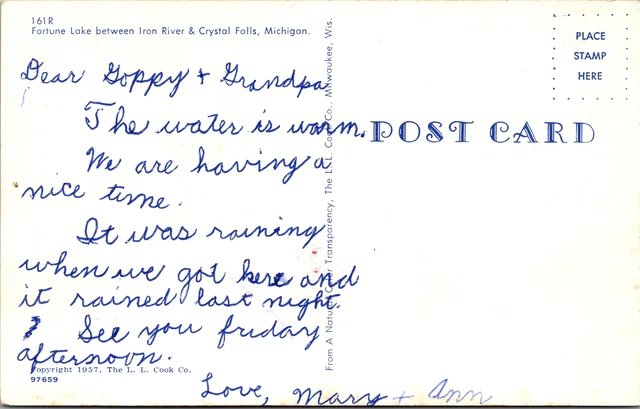 161R
Fortune Lake between Iron River & Crystal Falls, Michigan.
PLACE
STAMP
HERE
Dear Goppy + Grandpa
The water is warm.
We are having a
nice time.
It was raining
when we got here and
it rained last night.
See you friday
afternoon.
Love, Mary + Ann
POST CARD
From A Natural Color Transparency, The L. L. Cook Co., Milwaukee, Wis.
Copyright 1957, The L. L. Cook Co.
97659